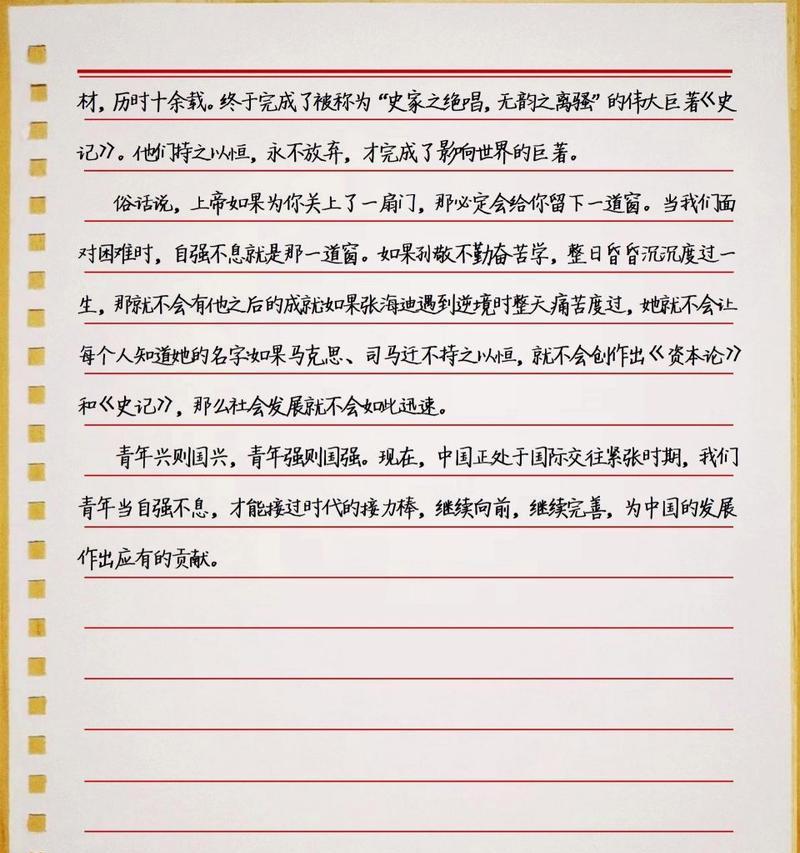 材，历时十余载。终于完成了被称为“史家之绝唱，无韵之离骚”的伟大巨著《史
记》。他们持之以恒，永不放弃，才完成了影响世界的巨著。
俗话说，上帝如果为你关上了一扇门，那必定会给你留下一道窗。当我们面
对困难时，自强不息就是那一道窗。如果孙敬不勤奋苦学，整日昏昏沉沉度过一
生，那就不会有他之后的成就如果张海迪遇到逆境时整天痛苦度过，她就不会让
每个人知道她的名字如果马克思、司马迁不持之以恒，就不会创作出《资本论》
和《史记》，那么社会发展就不会如此迅速。
青年兴则国兴，青年强则国强。现在，中国正处于国际交往紧张时期，我们
青年当自强不息，才能接过时代的接力棒，继续向前，继续完善，为中国的发展
作出应有的贡献。